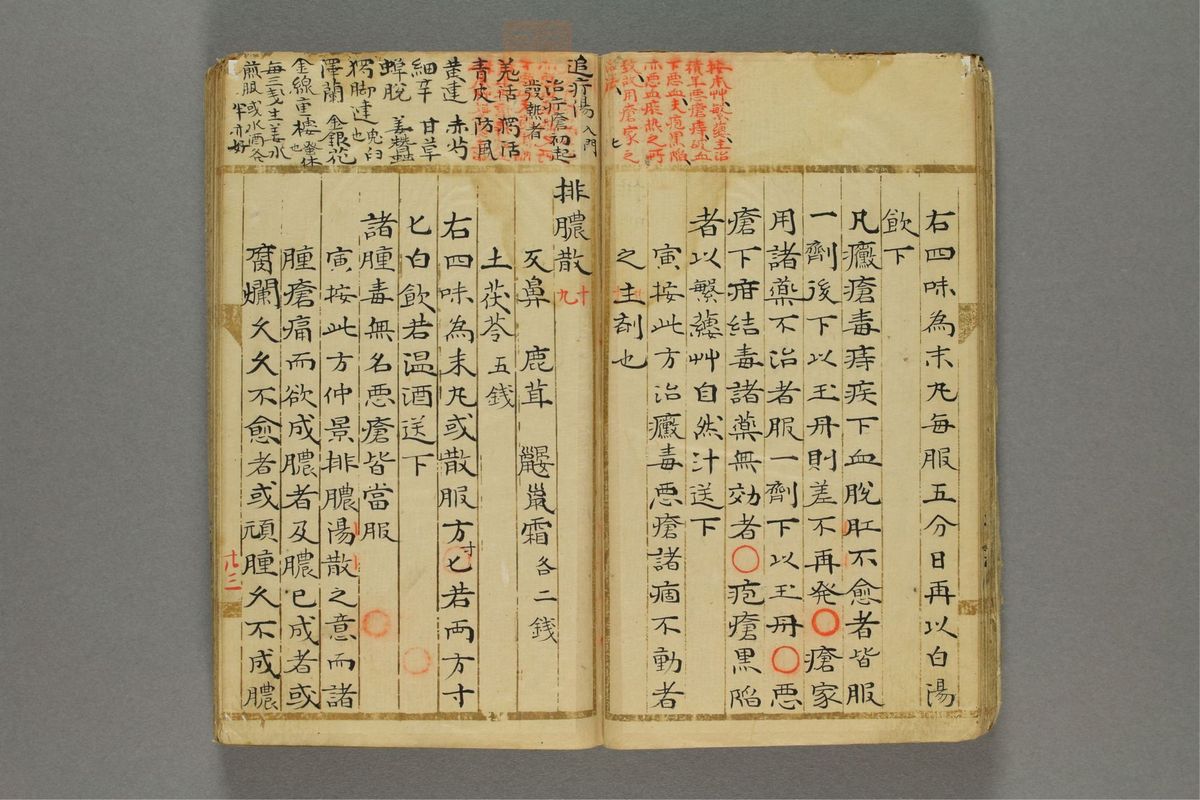 右四味為末丸每服五分日再以白湯
飲下
凡癥瘡毒痔疾下血脫肛不愈者皆服
一劑後下以玉丹則差不再発○瘡家
用諸藥不治者服一劑下以玉丹○悪
瘡下疳結毒諸藥無効者○疱瘡黒陷
者以繁蔞艸自然汁送下
寅按此方治癥毒悪瘡諸痼不動者
之主剤也
本艸繁蔞主治
積年悪瘡痔
下悪血
悪血
用瘡家之
排膿散 十九
反鼻 鹿茸 鼴鼠霜 各二錢
土茯苓 五錢
右四味為末丸或散服方寸匕若両方寸
匕白飲若温酒送下
諸腫毒無名悪瘡皆當服
寅按此方仲景排膿湯散之意而諸
腫瘡痛而欲成膿者及膿已成者或
腐爛久久不愈者或頑腫久不成膿
追疔湯 入門
治疔瘡初起
發熱者
羌活 獨活
青皮 防風
黄連 赤芍
細辛 甘草
蟬脱 姜蠶
獨脚連也
澤蘭 金銀花
金線重樓也
每三戔生姜水
煎服或水酒各
半亦好
廿三